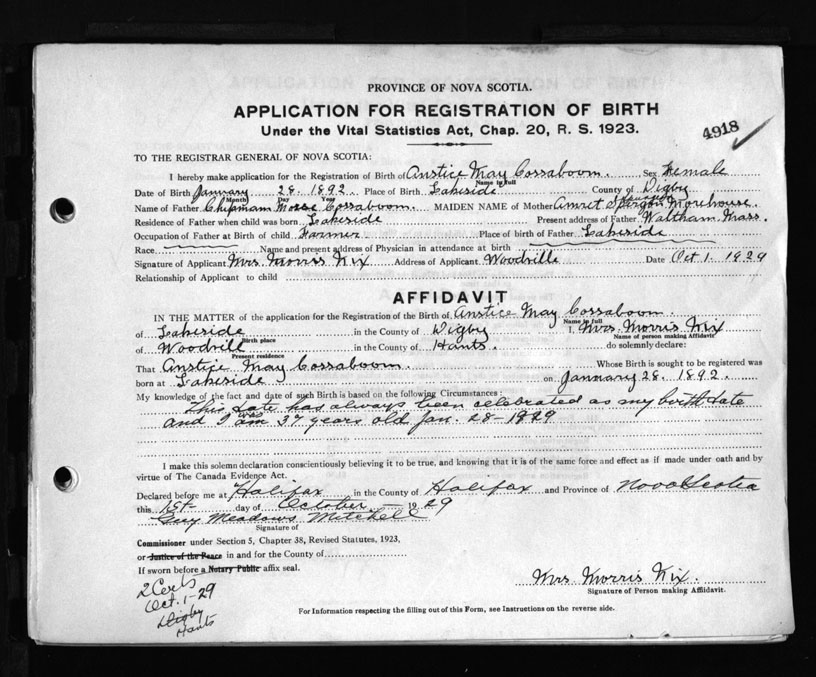 PROVINCE OF NOVA SCOTIA.
APPLICATION FOR REGISTRATION OF BIRTH
Under the Vital Statistics Act, Chap. 20, R. S. 1923.
4918
TO THE REGISTRAR GENERAL OF NOVA SCOTIA:
I hereby make application for the Registration of Birth of Anstice May Cossaboom. Sex Female
Name in full
Date of Birth January 28. 1892. Place of Birth Lakeside County of Digby
(Month) Day Year
Name of Father Chipman Morse Cossaboom. MAIDEN NAME of Mother Amret Morehouse.
Residence of Father when child was born Lakeside Present address of Father Waltham Mass.
Occupation of Father at Birth of child Farmer Place of birth of Father Lakeside
Race Name and present address of Physician in attendance at birth
Signature of Applicant Mrs Morris Nix Address of Applicant Woodville Date Oct 1. 1929
Relationship of Applicant to child
AFFIDAVIT
IN THE MATTER of the application for the Registration of the Birth of Anstice May Cossaboom.
Name in full
of Lakeside in the County of Digby I, Mrs. Morris Nix
Birth place Name of person making Affidavit
of Woodvill in the County of Hants. do solemnly declare:
Present residence
That Anstice May Cossaboom. Whose Birth is sought to be registered was
born at Lakeside on January 28. 1892.
My knowledge of the fact and date of such Birth is based on the following Circumstances:
This date has always been celebrated as my birth date
and I was am 37 years old Jan. 28-1929
I make this solemn declaration conscientiously believing it to be true, and knowing that it is of the same force and effect as if made under oath and by
virtue of The Canada Evidence Act.
Declared before me at Halifax in the County of Halifax and Province of Nova Scotia
this 1st day of October 1929
Guy Meadows Mitchell
Signature of
Commissioner under Section 5, Chapter 38, Revised Statutes, 1923,
or Justice of the Peace in and for the County of
If sworn before a Notary Public affix seal.
2 Certs
Oct. 1-29
Digby
Hants
Mrs Morris Nix.
Signature of Person making Affidavit.
For Information respecting the filling out of this Form, see Instructions on the reverse side.